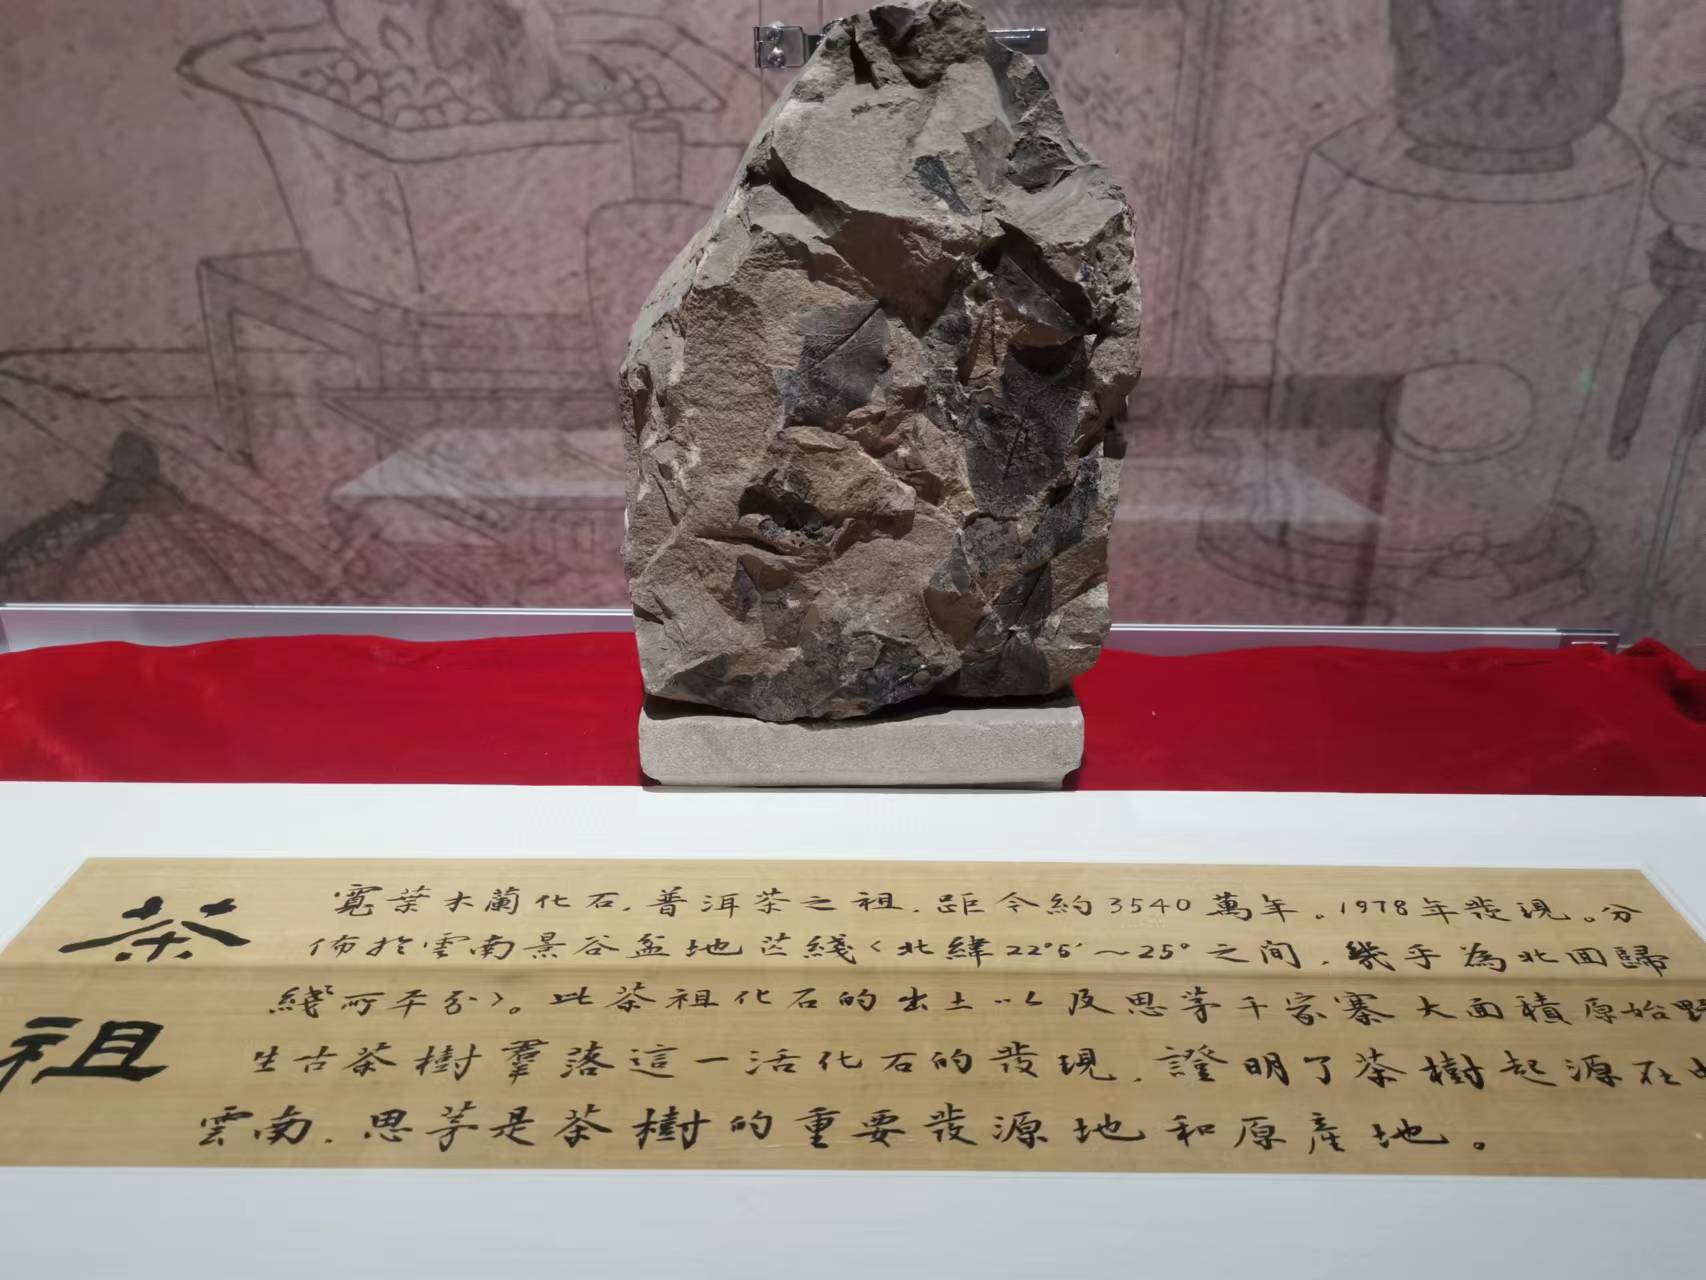 茶祖
寬葉木蘭化石，普洱茶之祖，距今約3540萬年。1978年發現。分
佈於雲南景谷盆地茫綫〈北緯22°5′～25°之间，幾乎為北回歸
綫所平分〉。此茶祖化石的出土以及思茅千家寨大面積原始野
生古茶樹羣落這一活化石的發現，證明了茶樹起源在
雲南，思茅是茶樹的重要發源地和原產地。